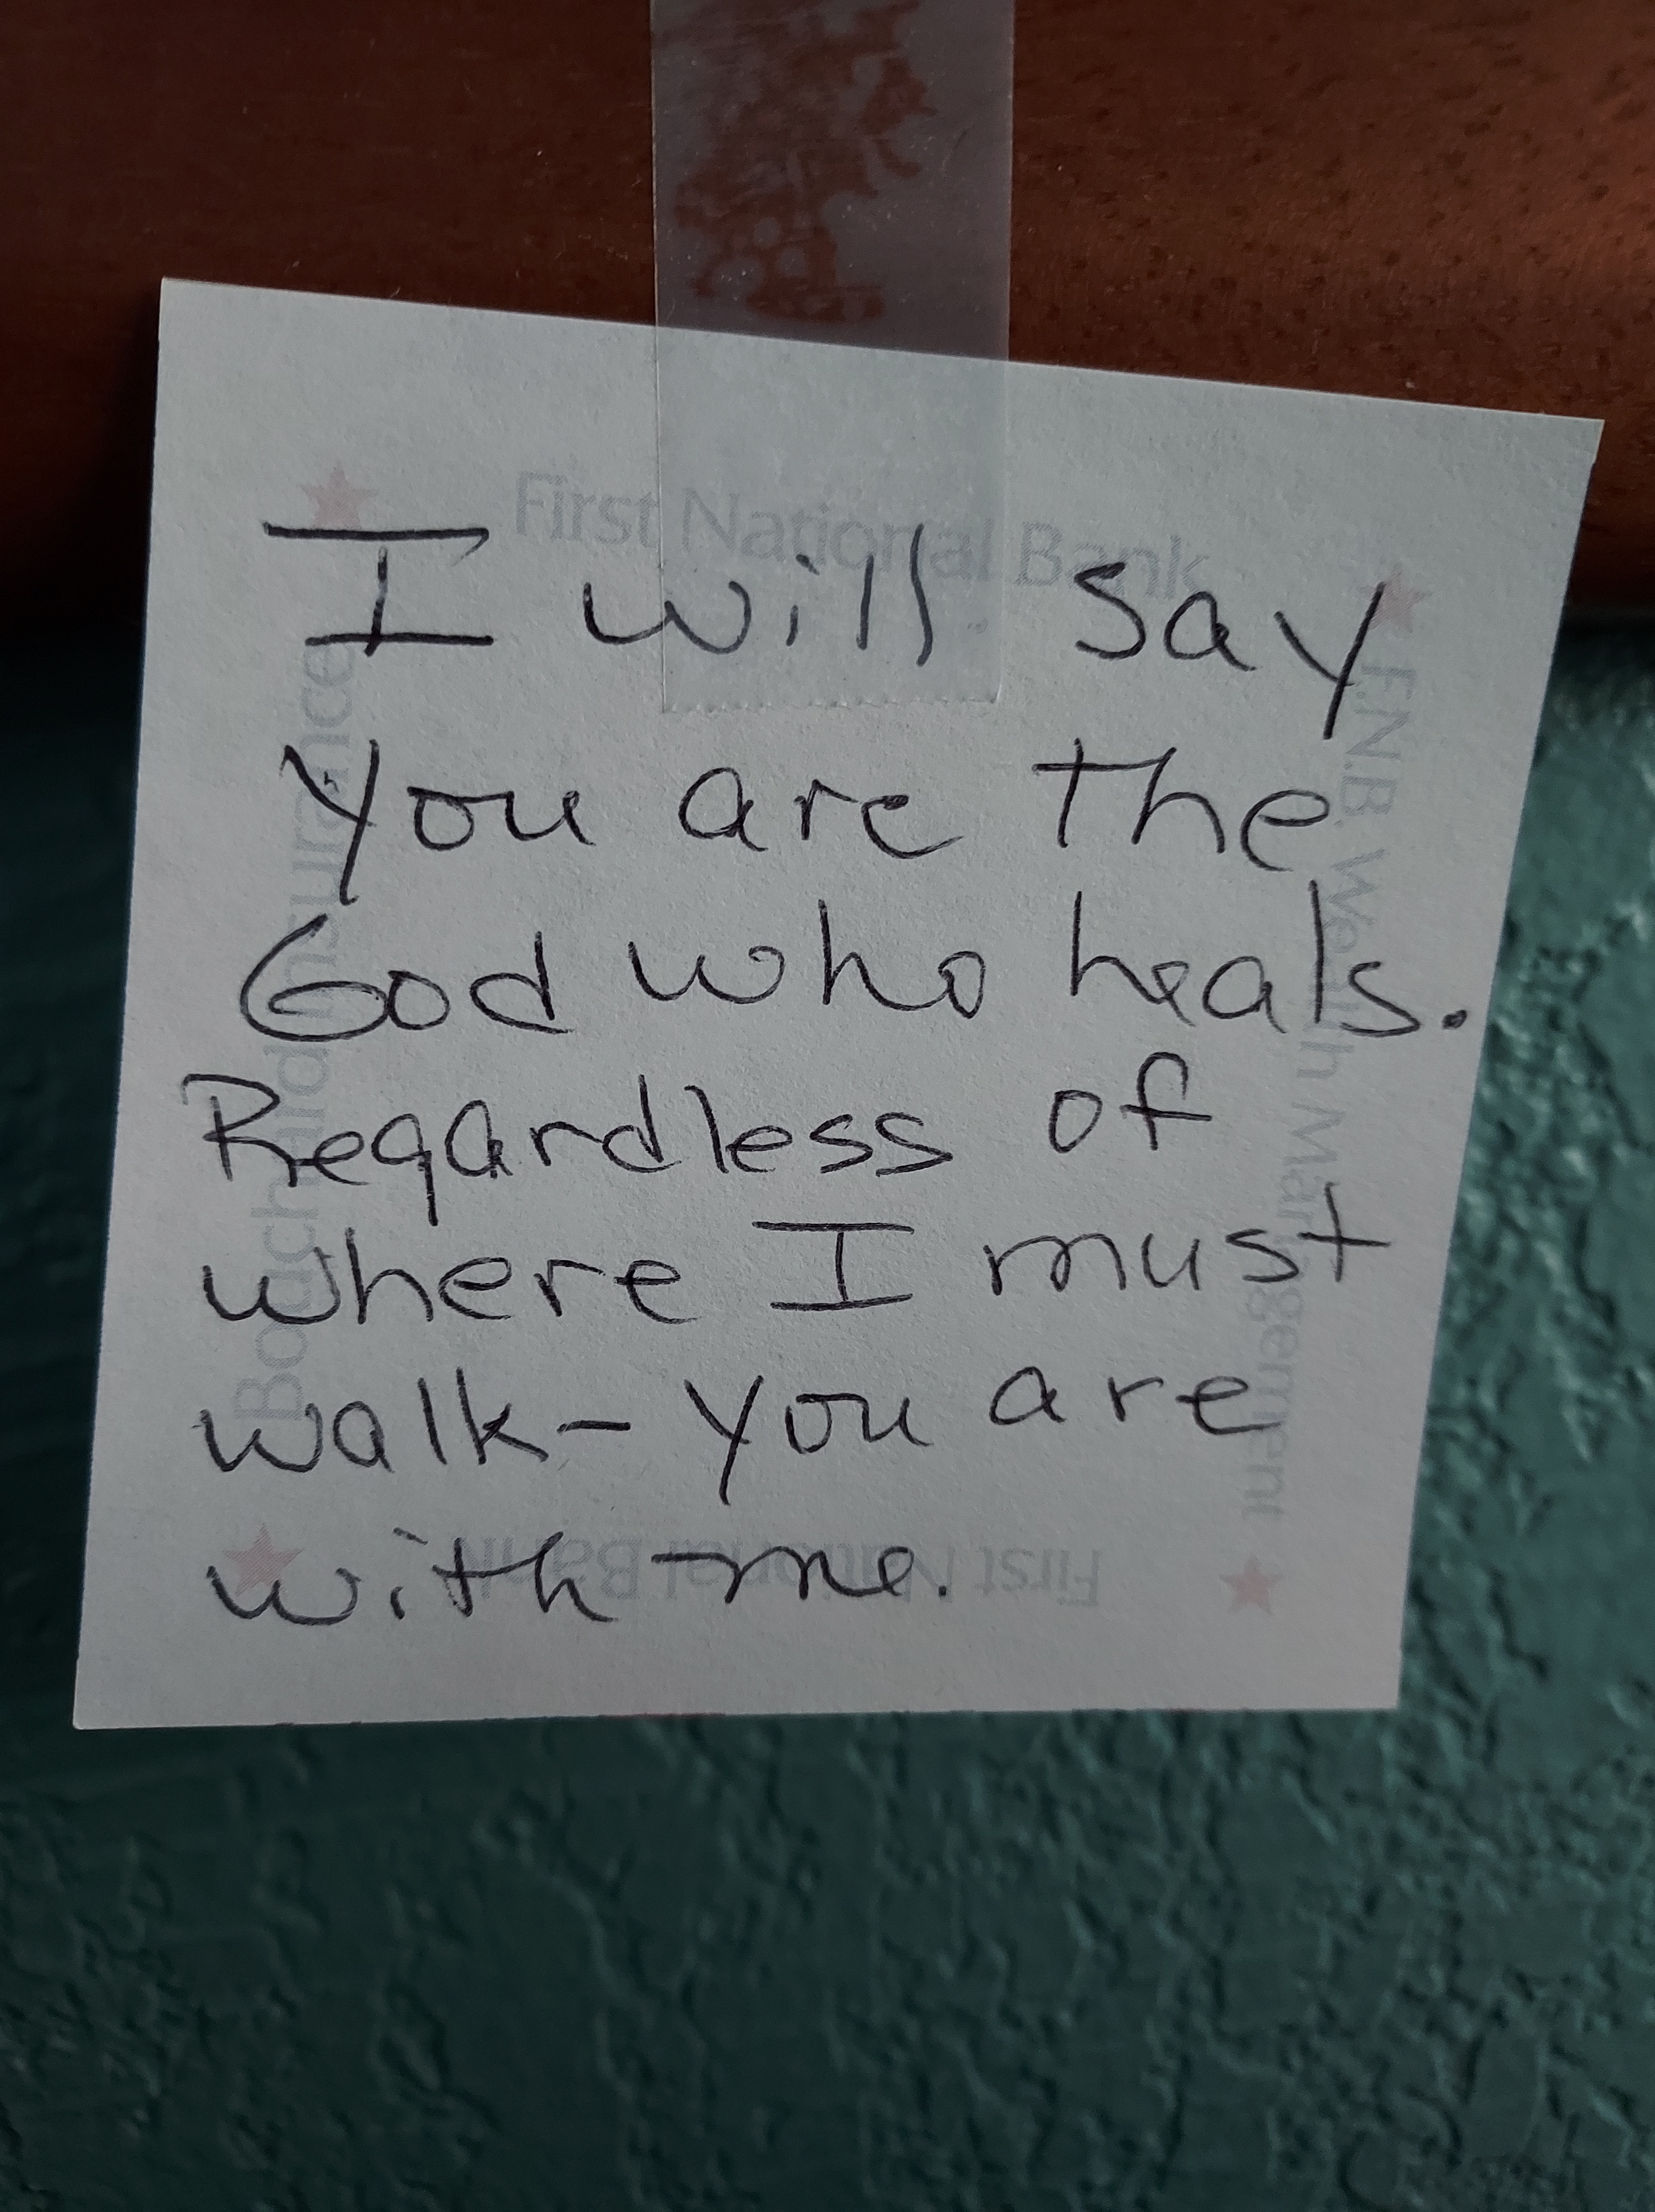 First National Bank
I will say
you are the
God who heals.
Regardless of
where I must
walk- you are
with me.
F.N.B. Wealth Management
First National Bank
Bouchard Insurance